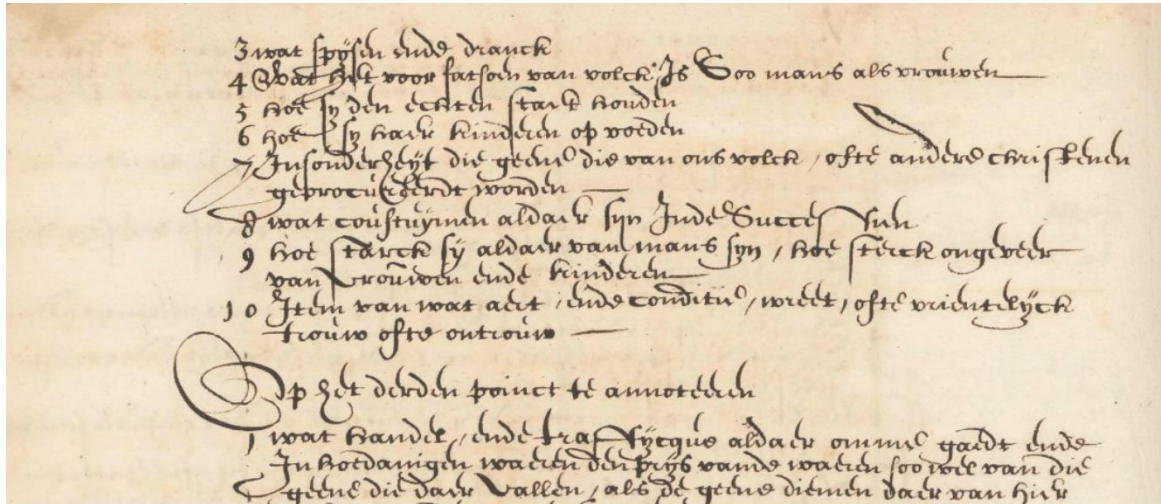 3 wat spijsen ende dranck
4 Wat het voor fatsoen van volck is Soo mans als vrouwen
5 hoe sy den echten staet houden
6 hoe sy haer kinderen op voeden
7 Insonderheyt die geene die van ons volck, ofte andere christenen
geprocureerdt worden
8 wat coustuijmen aldaer sijn Inde Successien
9 hoe starck sij aldaer van mans syn, hoe sterck ongeveer
van vrouwen ende kinderen
10 Item van wat aert, ende conditie, wreet, ofte vrientelyck
trouw ofte ontrouw
Op het derden poinct te annoteeren
1 wat handel, ende traffycque aldaer omme gaedt ende
In hoedanigen waeren den prijs vande waeren soo wel van die
geene die daer vallen, als de geene diemen daer van hier